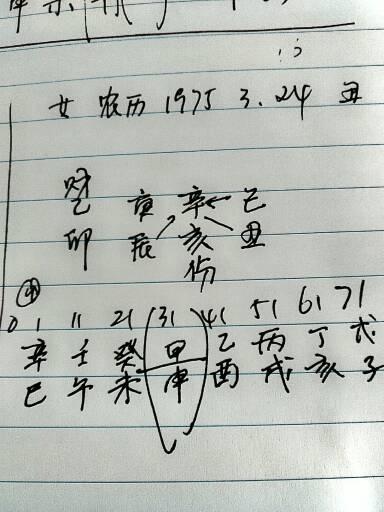 女 农历 1975 3.24 丑
财
乙 庚 辛 己
卯 辰 亥 丑
伤
0 1 11 21 31 41 51 61 71
辛 壬 癸 甲 乙 丙 丁 戊
巳 午 未 申 酉 戌 亥 子